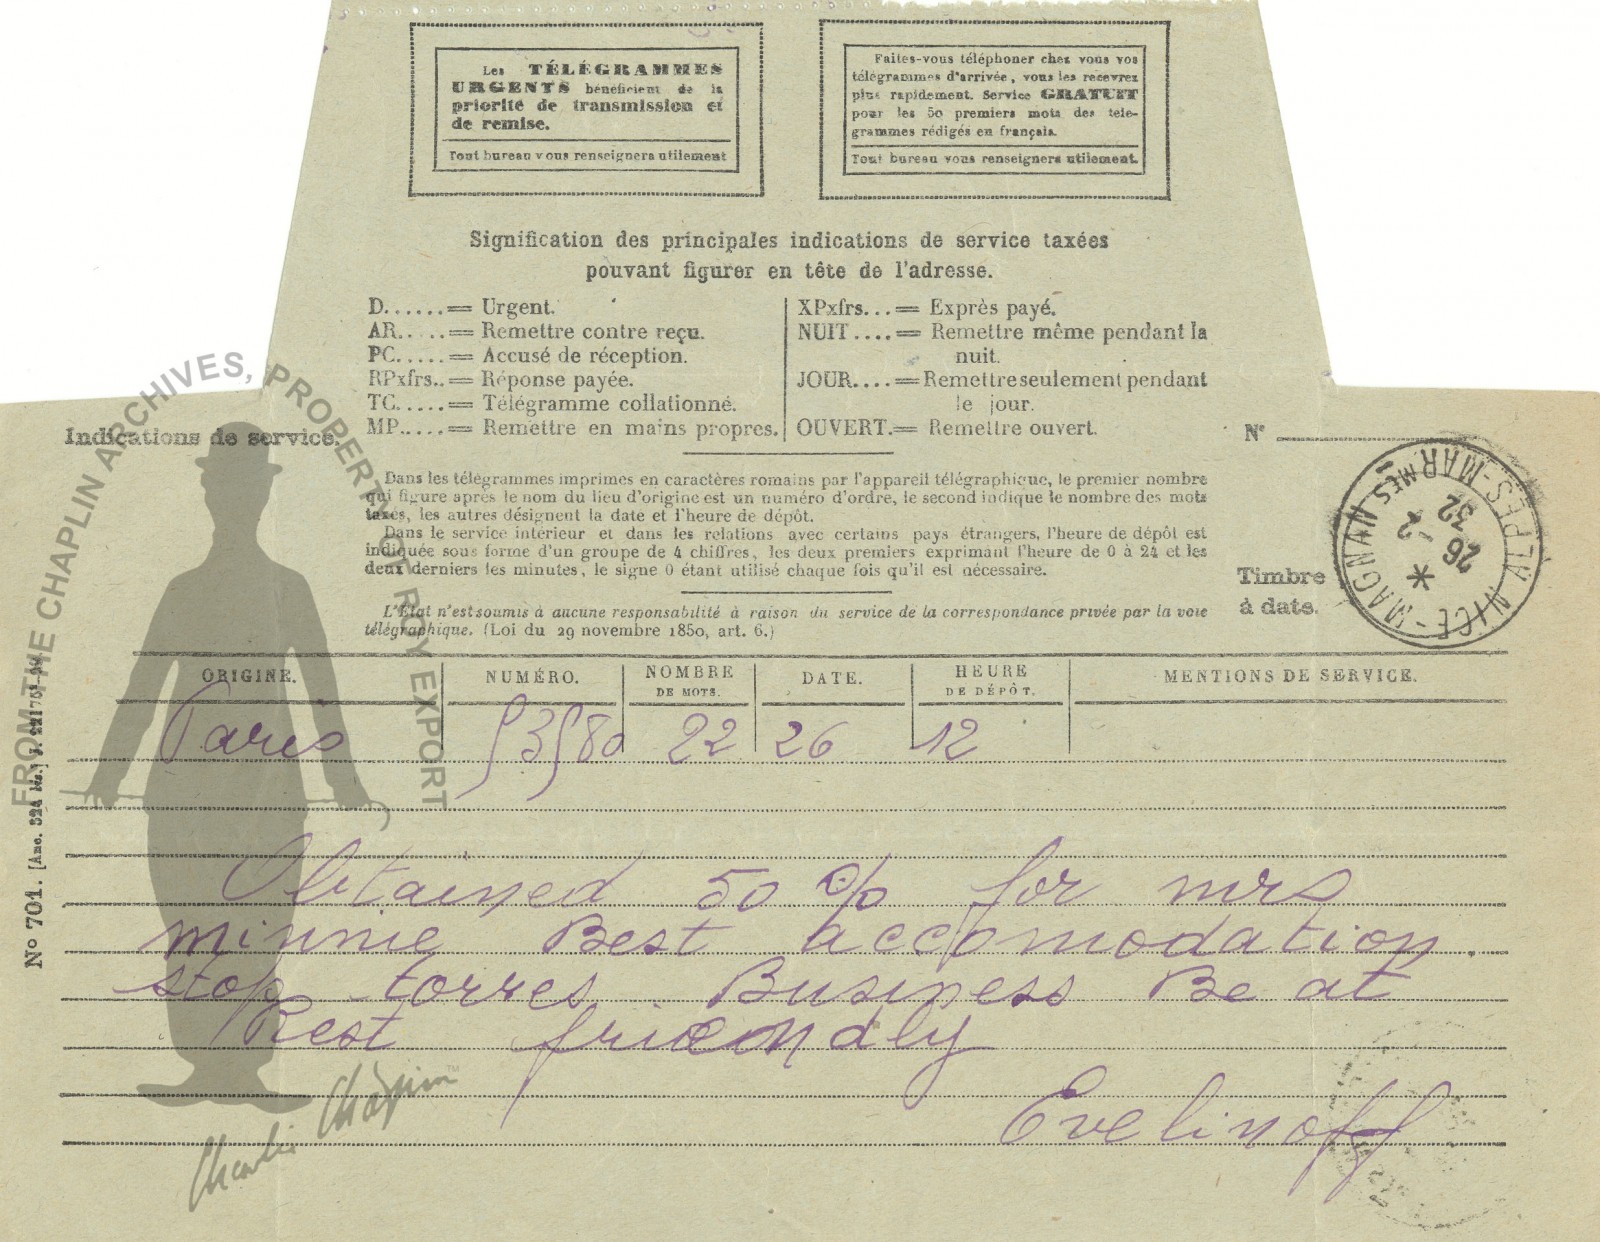 Les TÉLÉGRAMMES
URGENTS bénéficient de la
priorité de transmission et
de remise.
Tout bureau vous renseignera utilement
Faites-vous téléphoner chez vous vos
télégrammes d'arrivée, vous les recevrez
plus rapidement. Service GRATUIT
pour les 50 premiers mots des télé-
grammes rédigés en français.
Tout bureau vous renseignera utilement.
Signification des principales indications de service taxées
pouvant figurer en tête de l'adresse.
D......= Urgent.
AR.....= Remettre contre reçu.
PC.....= Accusé de réception.
RPxfrs..= Réponse payée.
TC.....= Télégramme collationné.
MP.....= Remettre en mains propres.
XPxfrs...= Exprès payé.
NUIT....= Remettre même pendant la
nuit.
JOUR....= Remettre seulement pendant
le jour.
OUVERT.= Remettre ouvert.
Indications de service.
N°
Dans les télégrammes imprimés en caractères romains par l'appareil télégraphique, le premier nombre
qui figure après le nom du lieu d'origine est un numéro d'ordre, le second indique le nombre des mots
taxés, les autres désignent la date et l'heure de dépôt.
Dans le service intérieur et dans les relations avec certains pays étrangers, l'heure de dépôt est
indiquée sous forme d'un groupe de 4 chiffres, les deux premiers exprimant l'heure de 0 à 24 et les
deux derniers les minutes, le signe 0 étant utilisé chaque fois qu'il est nécessaire.
L'État n'est soumis à aucune responsabilité à raison du service de la correspondance privée par la voie
télégraphique. (Loi du 29 novembre 1850, art. 6.)
Timbre
à date.
NICE-MAGNAN ALPES-MARMES
26 -2
32
ORIGINE.
NUMÉRO.
NOMBRE
DE MOTS.
DATE.
HEURE
DE DÉPÔT.
MENTIONS DE SERVICE.
Paris 53580 22 26 12
Obtained 50 % for mrs
minnie Best accomodation.
stop torres Business Be at
Rest friendly
Evelinoff
N° 701. [Anc. 524
FROM THE CHAPLIN ARCHIVES, PROPERTY OF ROY EXPORT
Charlie Chaplin™